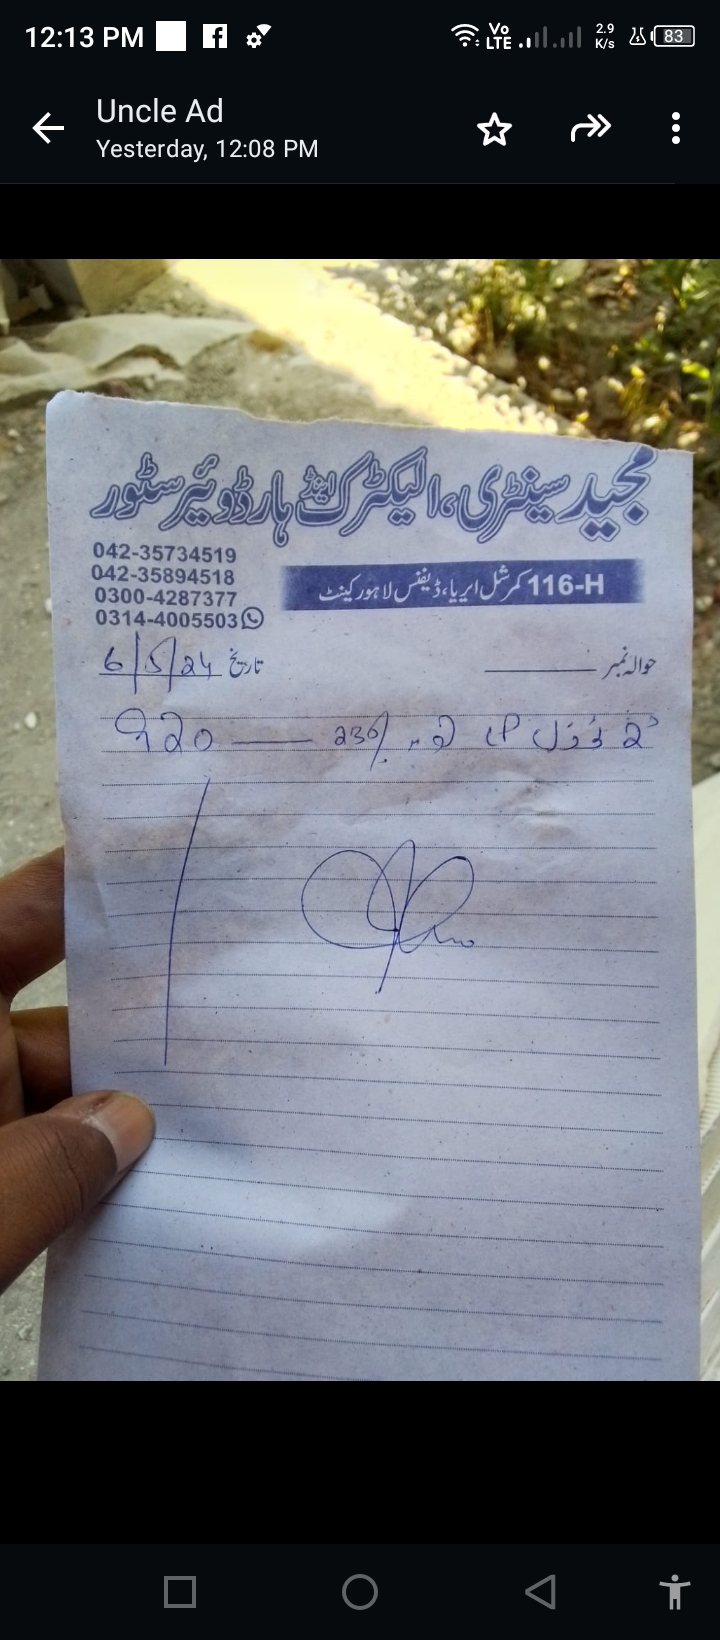 12:13 PM
Vo LTE 2.9 K/s 83
Uncle Ad
Yesterday, 12:08 PM
مجید سینٹری، الیکٹرک اینڈ ہارڈوئیر سٹور
042-35734519
042-35894518
0300-4287377
0314-4005503
116-H کمرشل ایریا، ڈیفنس لاہور کینٹ
حوالہ نمبر
تاریخ 6/5/24
2" 230/ — 920